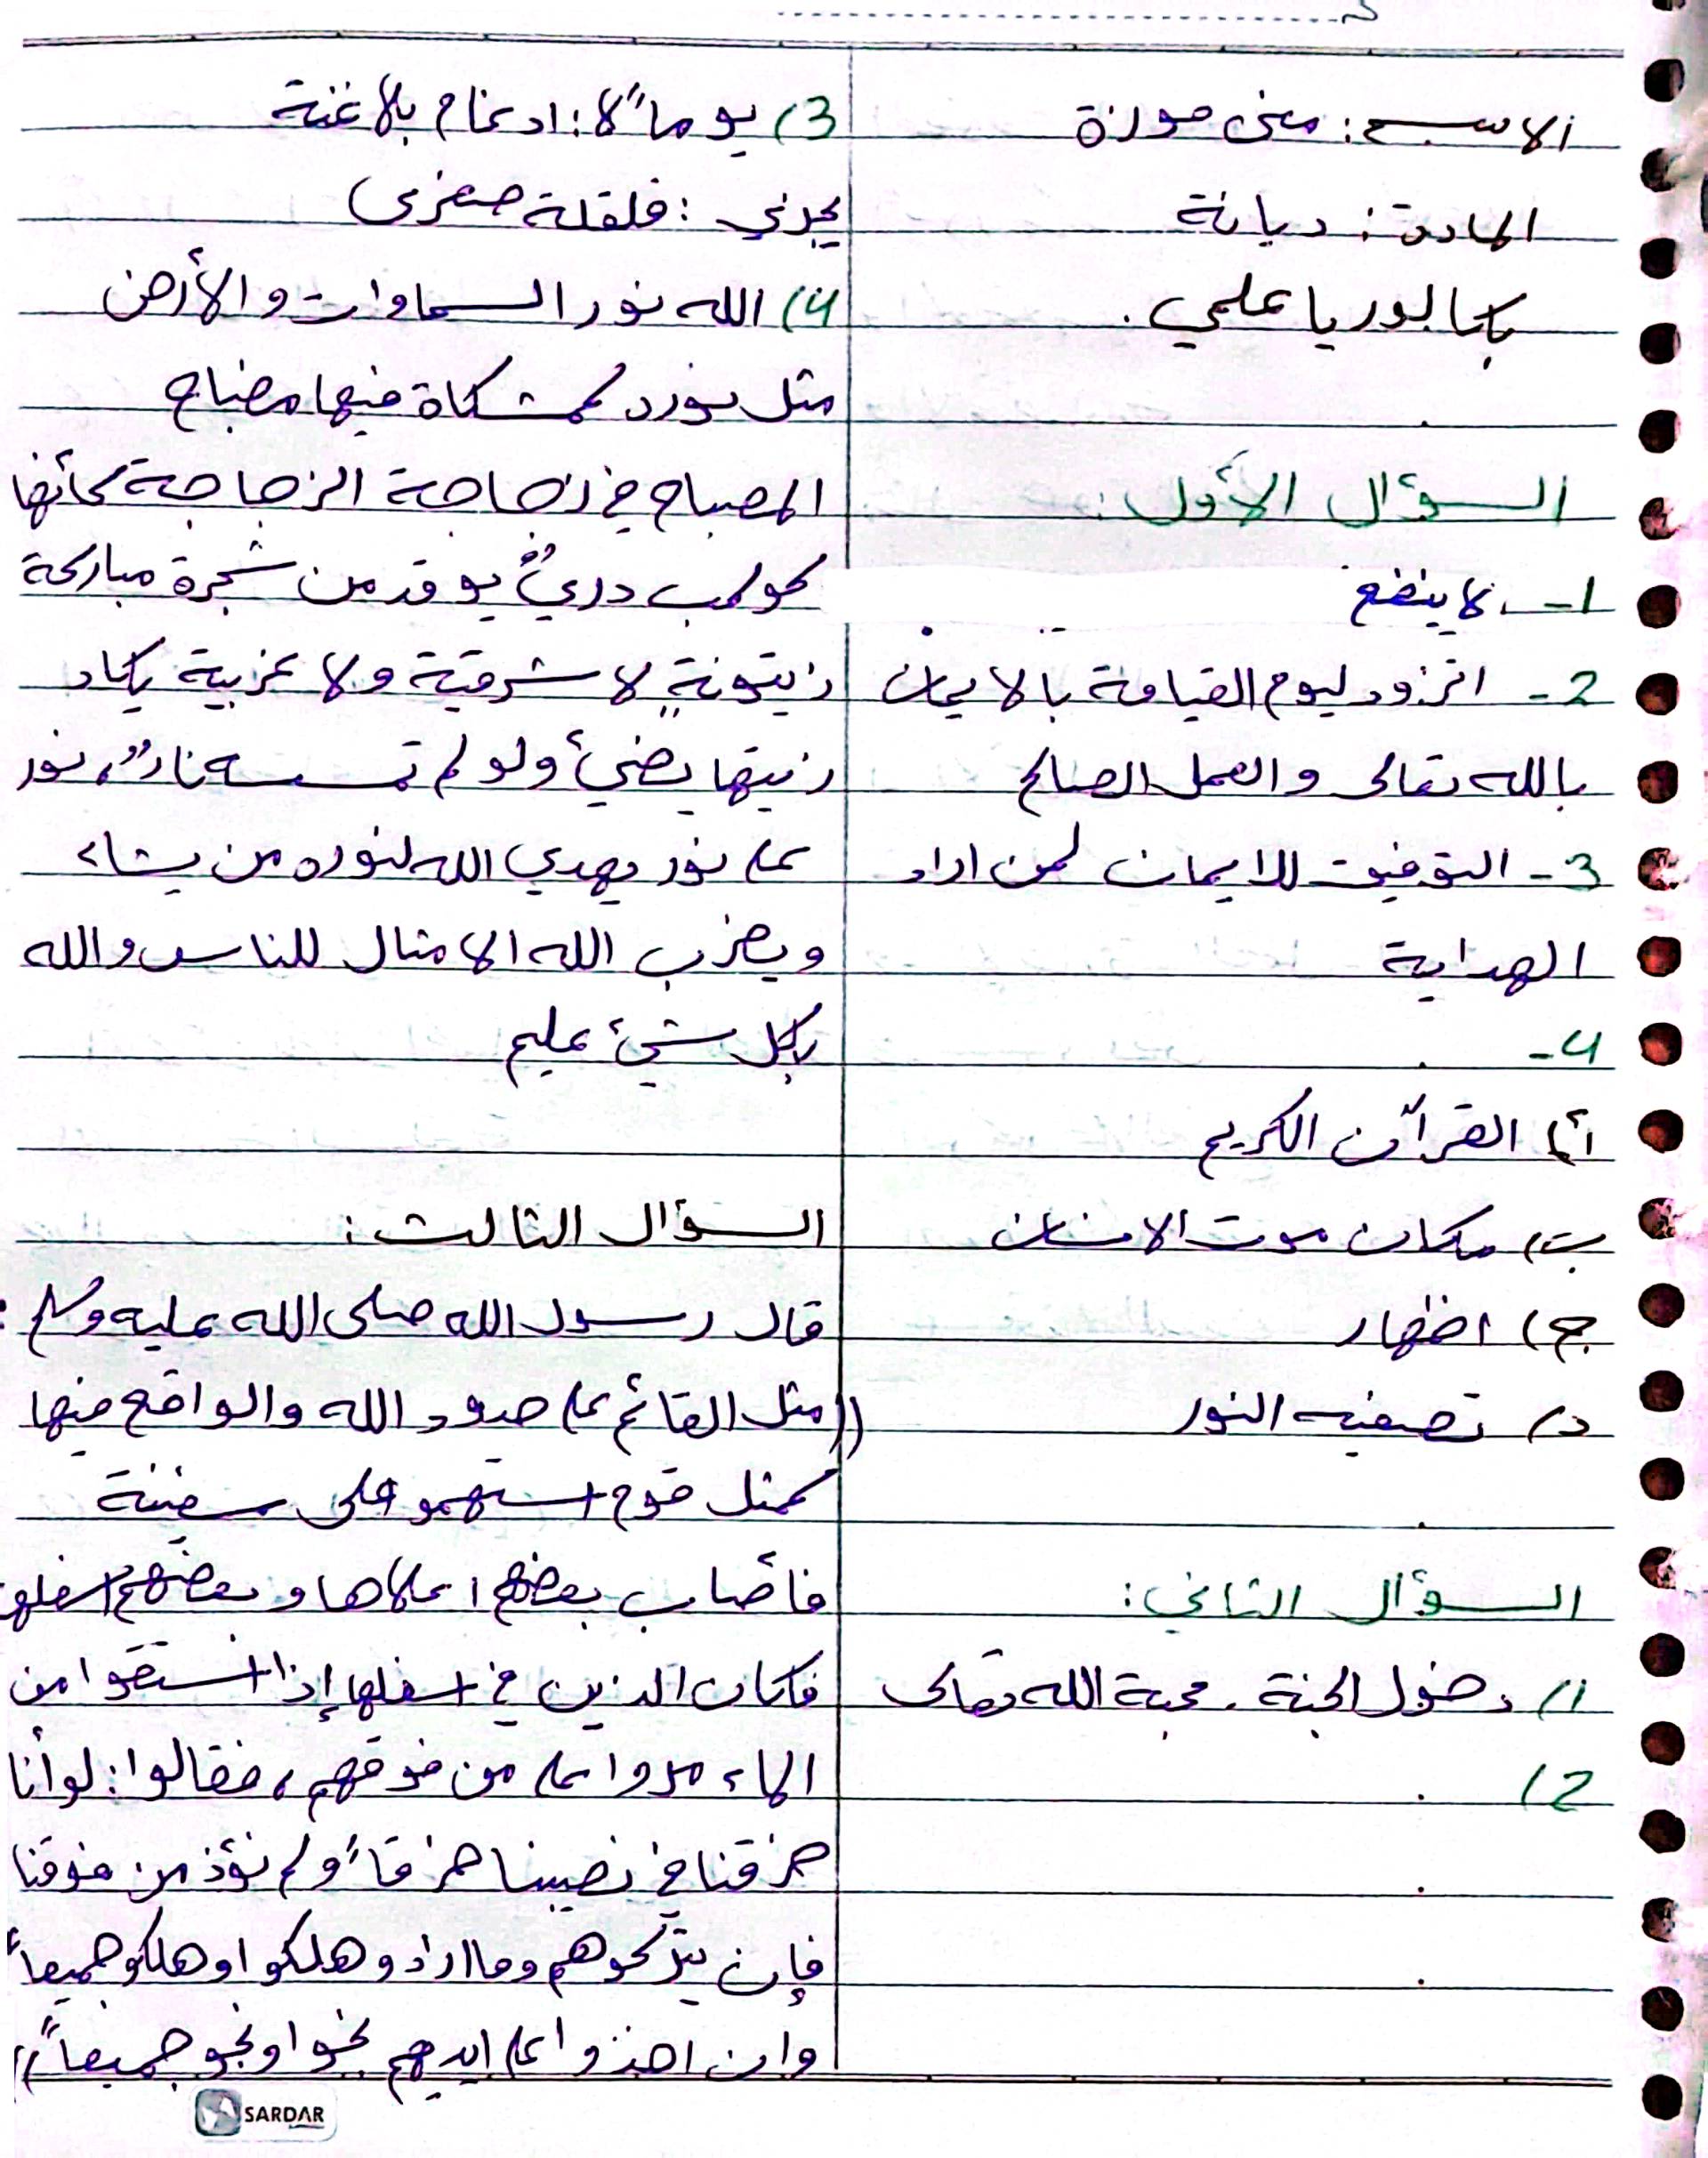 الاسم: منى موزة
المادة: ديانة
بكالوريا علمي.
السؤال الأول:
1- لا ينفع
2- اتزود ليوم القيامة بالايمان
بالله تعالى والعمل الصالح
3- التوفيق للايمان لمن اراد
الهداية
4-
أ) القرآن الكريم
ب) مكان موت الانسان
ج) اظهار
د) تصفيه النور
السؤال الثاني:
1) دخول الجنة. محبة الله تعالى
2)
3) يوماً لا: ادغام بلا غنة
يجزي: قلقلة صغرى
4) الله نور السماوات والأرض
مثل نوره كمشكاة فيها مصباح
المصباح في زجاجة الزجاجة كأنها
كوكب دريٌ يوقد من شجرة مباركة
زيتونةٍ لا شرقية ولا غربية يكاد
زيتها يضيئ ولو لم تمسسه نارٌ، نور
على نور يهدي الله لنوره من يشاء
ويضرب الله الامثال للناس والله
بكل شيئ عليم
السؤال الثالث:
قال رسول الله صلى الله عليه وسلم:
((مثل القائم على حدود الله والواقع فيها
كمثل قوم استهمو على سفينة
فأصاب بعضهم اعلاها وبعضهم اسفلها
فكان الذين في اسفلها إذا استقوا من
الماء مروا على من فوقهم، فقالوا: لو أنا
خرقنا في نصيبنا خرقاً ولم نؤذ من فوقنا
فإن يتركوهم وما ارادو هلكوا وهلكو جميعاً
وان اخذوا على ايديهم نجوا ونجو جميعاً))
SARDAR